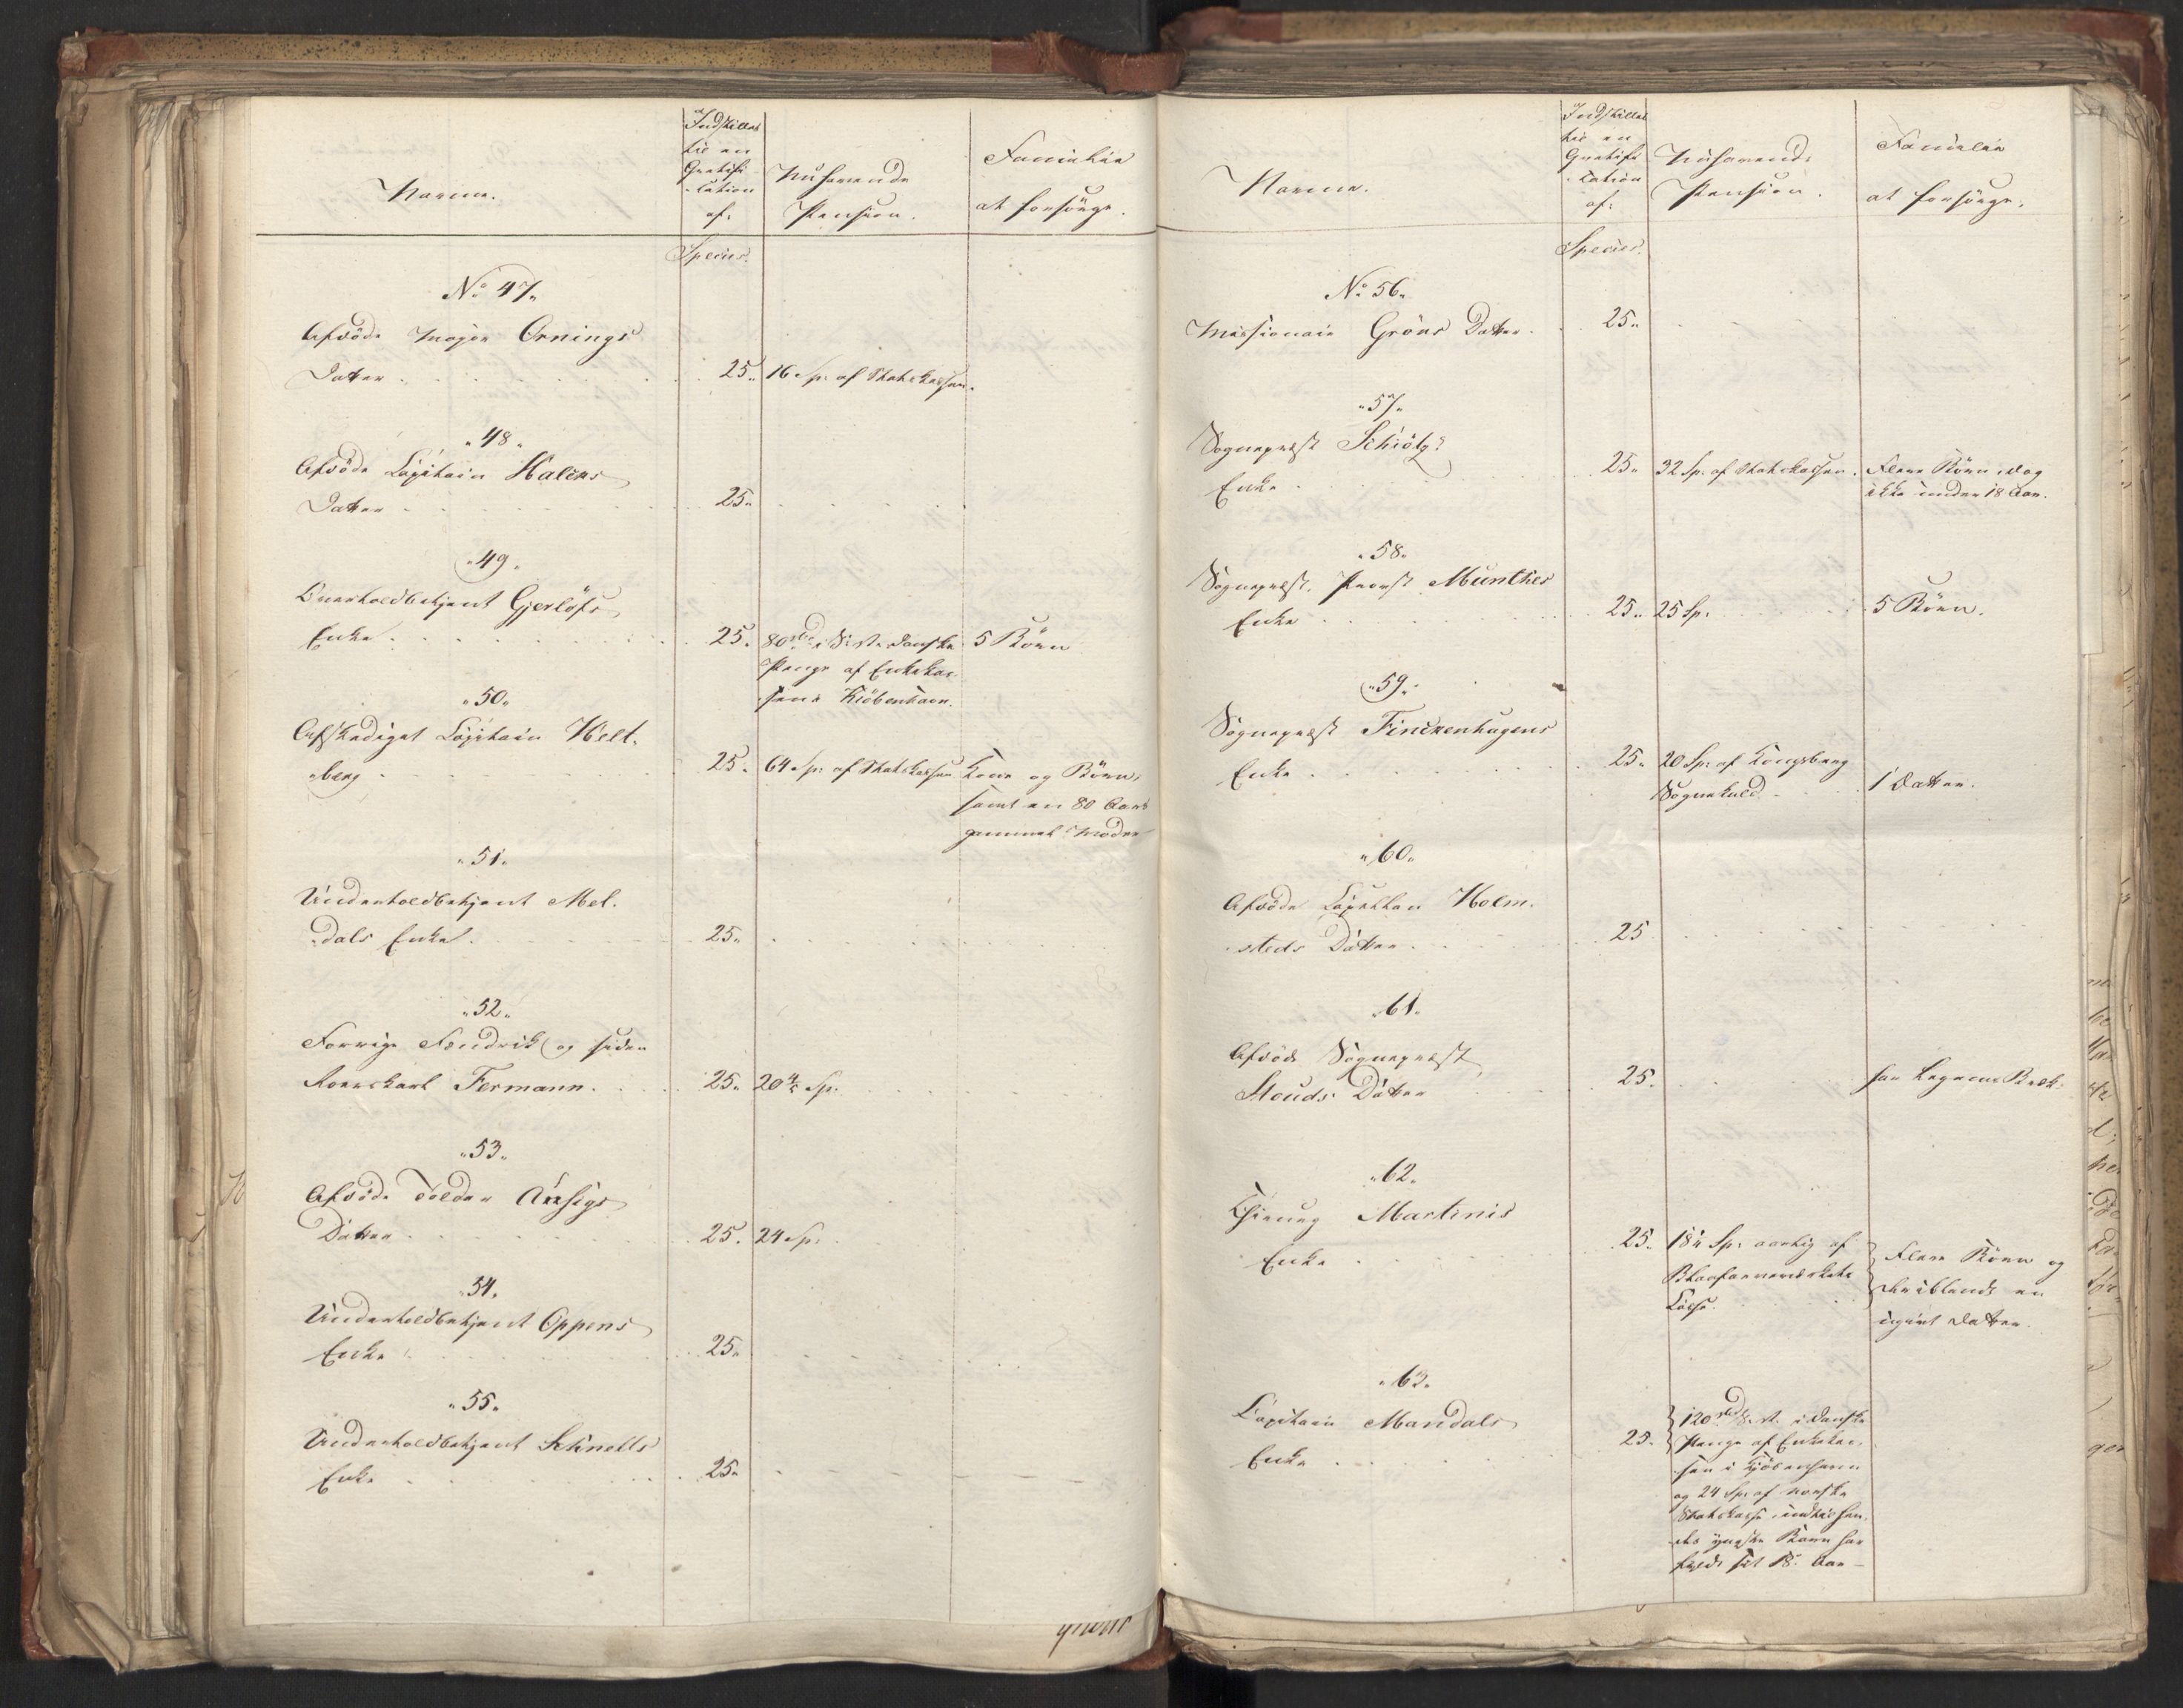 Navne.
Indstilles
til en
Gratifi-
-cation
af:
Nuhavende
Pension.
Familie
at forsörge.
Species.
No 47.
Afdöde Major Ornings
Datter . . . 25. 16 Sp: af Statskassen.
"48"
Afdöde Capitain Halcks
Datter . . . 25.
"49"
Overtoldbetjent Gjerlöfs
Enke . . . 25. 80 rbd. S: V. danske 5 Börn
Penge af Enkekas-
sen i Kiöbenhavn.
"50"
Afskediget Capitain Helt-
berg . . . 25. 64 Sp: af Statskassen Kone og Börn,
samt en 80 Aars
gammel Moder
"51"
Undertoldbetjent Mel-
dals Enke . . . 25.
"52"
Forrige Fendrik og siden
Roerskarl Fermann . . . 25. 20 4/5 Sp.
"53"
Afdöde Tolder Ansigs
Datter . . . 25. 24 Sp:
"54"
Undertoldbetjent Oppens
Enke . . . 25.
"55"
Undertoldbetjent Schnells
Enke . . . 25.
Navne.
Indstilles
til en
Gratifi-
-cation
af:
Nuhavende
Pension.
Familie
at forsörge.
Species.
No 56.
Missionair Gröns Datter . . 25.
"57"
Sognepræst Schiötz's
Enke . . . 25. 32 Sp: af Statskassen. Flere Börn, dog
ikke under 18 Aar.
"58"
Sognepræst, Provst Munthes
Enke . . . 25. 25 Sp: . . . 5 Börn.
"59"
Sognepræst Finckenhagens
Enke . . . 25. 20 Sp: af Kongsberg
Sognekald . . 1 Datter.
"60"
Afdöde Capellan Holm-
steds Datter . . . 25
"61"
Afdöde Sognepræst
Stouds Datter . . . 25. har Legems Bræk.
"62"
Chirurg Martinis
Enke . . . 25. 18 Sp: aarlig af
Blaafarveværkets
Casse.
Flere Börn og
deriblandt en
ugivt Datter.
"63"
Capitain Mandals
Enke . . . 25. 120 rbd. S. V. i danske
Penge af Enkekas-
sen i Kjöbenhavn
og 24 Sp: af norske
Statskasse, indtil hen-
des yngste Barn har
fyldt sit 18. Aar